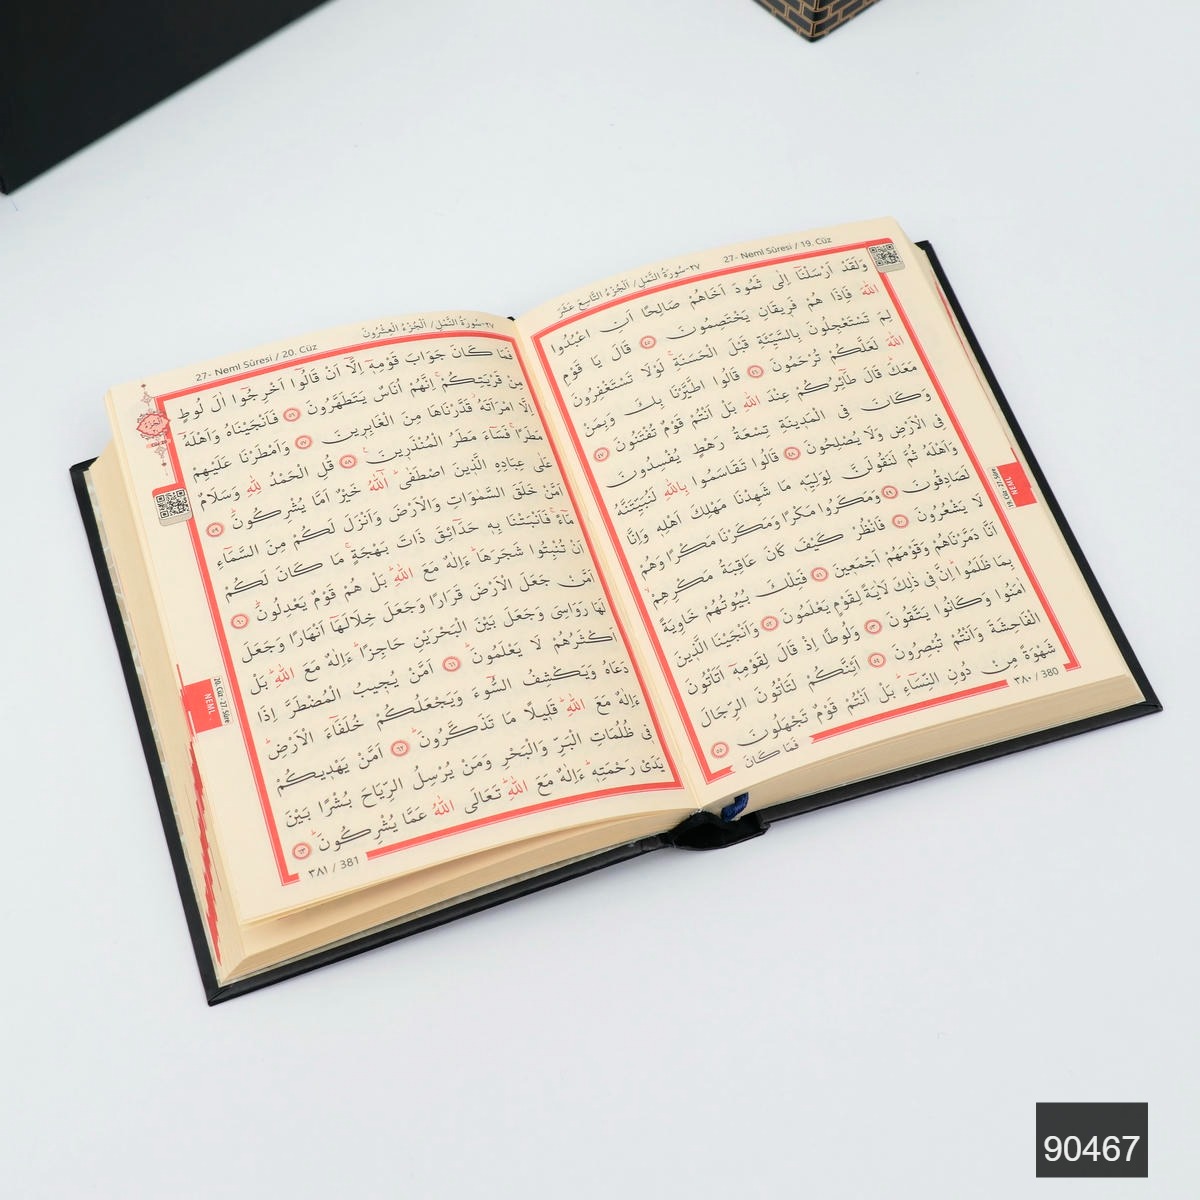 27- Neml Sûresi / 19. Cüz
٢٧-سُورَةُ النَّمْلِ/ اَلْجُزْءُ التَّاسِعَ عَشَرَ
وَلَقَدْ اَرْسَلْنَٓا اِلٰى ثَمُودَ اَخَاهُمْ صَالِحًا اَنِ اعْبُدُوا
اللّٰهَ فَاِذَا هُمْ فَر۪يقَانِ يَخْتَصِمُونَ ﴿٤٥﴾ قَالَ يَا قَوْمِ
لِمَ تَسْتَعْجِلُونَ بِالسَّيِّئَةِ قَبْلَ الْحَسَنَةِۚ لَوْلَا تَسْتَغْفِرُونَ
اللّٰهَ لَعَلَّكُمْ تُرْحَمُونَ ﴿٤٦﴾ قَالُوا اطَّيَّرْنَا بِكَ وَبِمَنْ
مَعَكَۜ قَالَ طَٓائِرُكُمْ عِنْدَ اللّٰهِ بَلْ اَنْتُمْ قَوْمٌ تُفْتَنُونَ ﴿٤٧﴾
وَكَانَ فِي الْمَد۪ينَةِ تِسْعَةُ رَهْطٍ يُفْسِدُونَ
فِي الْاَرْضِ وَلَا يُصْلِحُونَ ﴿٤٨﴾ قَالُوا تَقَاسَمُوا بِاللّٰهِ لَنُبَيِّتَنَّهُ
وَاَهْلَهُ ثُمَّ لَنَقُولَنَّ لِوَلِيِّه۪ مَا شَهِدْنَا مَهْلِكَ اَهْلِه۪ وَاِنَّا
لَصَادِقُونَ ﴿٤٩﴾ وَمَكَرُوا مَكْرًا وَمَكَرْنَا مَكْرًا وَهُمْ
لَا يَشْعُرُونَ ﴿٥٠﴾ فَانْظُرْ كَيْفَ كَانَ عَاقِبَةُ مَكْرِهِمْۙ
اَنَّا دَمَّرْنَاهُمْ وَقَوْمَهُمْ اَجْمَع۪ينَ ﴿٥١﴾ فَتِلْكَ بُيُوتُهُمْ خَاوِيَةً
بِمَا ظَلَمُواۜ اِنَّ ف۪ي ذٰلِكَ لَاٰيَةً لِقَوْمٍ يَعْلَمُونَ ﴿٥٢﴾ وَاَنْجَيْنَا الَّذ۪ينَ
اٰمَنُوا وَكَانُوا يَتَّقُونَ ﴿٥٣﴾ وَلُوطًا اِذْ قَالَ لِقَوْمِه۪ٓ اَتَأْتُونَ
الْفَاحِشَةَ وَاَنْتُمْ تُبْصِرُونَ ﴿٥٤﴾ اَئِنَّكُمْ لَتَأْتُونَ الرِّجَالَ
شَهْوَةً مِنْ دُونِ النِّسَٓاءِۜ بَلْ اَنْتُمْ قَوْمٌ تَجْهَلُونَ ﴿٥٥﴾
فَمَا كَانَ
٣٨٠ / 380
NEML
19. Cüz - 27. Sûre
27- Neml Sûresi / 20. Cüz
٢٧-سُورَةُ النَّمْلِ/ اَلْجُزْءُ الْعِشْرُونَ
فَمَا كَانَ جَوَابَ قَوْمِه۪ٓ اِلَّٓا اَنْ قَالُٓوا اَخْرِجُٓوا اٰلَ لُوطٍ
مِنْ قَرْيَتِكُمْۚ اِنَّهُمْ اُنَاسٌ يَتَطَهَّرُونَ ﴿٥٦﴾ فَاَنْجَيْنَاهُ وَاَهْلَهُٓ
اِلَّا امْرَاَتَهُۘ قَدَّرْنَاهَا مِنَ الْغَابِر۪ينَ ﴿٥٧﴾ وَاَمْطَرْنَا عَلَيْهِمْ
مَطَرًاۚ فَسَٓاءَ مَطَرُ الْمُنْذَر۪ينَ۟ ﴿٥٨﴾ قُلِ الْحَمْدُ لِلّٰهِ وَسَلَامٌ
عَلٰى عِبَادِهِ الَّذ۪ينَ اصْطَفٰىۜ آٰللّٰهُ خَيْرٌ اَمَّا يُشْرِكُونَۜ ﴿٥٩﴾
اَمَّنْ خَلَقَ السَّمٰوَاتِ وَالْاَرْضَ وَاَنْزَلَ لَكُمْ مِنَ السَّمَٓاءِ
مَٓاءًۚ فَاَنْبَتْنَا بِه۪ حَدَٓائِقَ ذَاتَ بَهْجَةٍۚ مَا كَانَ لَكُمْ
اَنْ تُنْبِتُوا شَجَرَهَاۜ ءَاِلٰهٌ مَعَ اللّٰهِۜ بَلْ هُمْ قَوْمٌ يَعْدِلُونَۜ ﴿٦٠﴾
اَمَّنْ جَعَلَ الْاَرْضَ قَرَارًا وَجَعَلَ خِلَالَهَٓا اَنْهَارًا وَجَعَلَ
لَهَا رَوَاسِيَ وَجَعَلَ بَيْنَ الْبَحْرَيْنِ حَاجِزًاۜ ءَاِلٰهٌ مَعَ اللّٰهِۜ بَلْ
اَكْثَرُهُمْ لَا يَعْلَمُونَۜ ﴿٦١﴾ اَمَّنْ يُج۪يبُ الْمُضْطَرَّ اِذَا
دَعَاهُ وَيَكْشِفُ السُّٓوءَ وَيَجْعَلُكُمْ خُلَفَٓاءَ الْاَرْضِۜ
ءَاِلٰهٌ مَعَ اللّٰهِۜ قَل۪يلًا مَا تَذَكَّرُونَۜ ﴿٦٢﴾ اَمَّنْ يَهْد۪يكُمْ
ف۪ي ظُلُمَاتِ الْبَرِّ وَالْبَحْرِ وَمَنْ يُرْسِلُ الرِّيَاحَ بُشْرًا بَيْنَ
يَدَيْ رَحْمَتِه۪ۜ ءَاِلٰهٌ مَعَ اللّٰهِۜ تَعَالَى اللّٰهُ عَمَّا يُشْرِكُونَۜ ﴿٦٣﴾
٣٨١ / 381
NEML
20. Cüz - 27. Sûre
90467